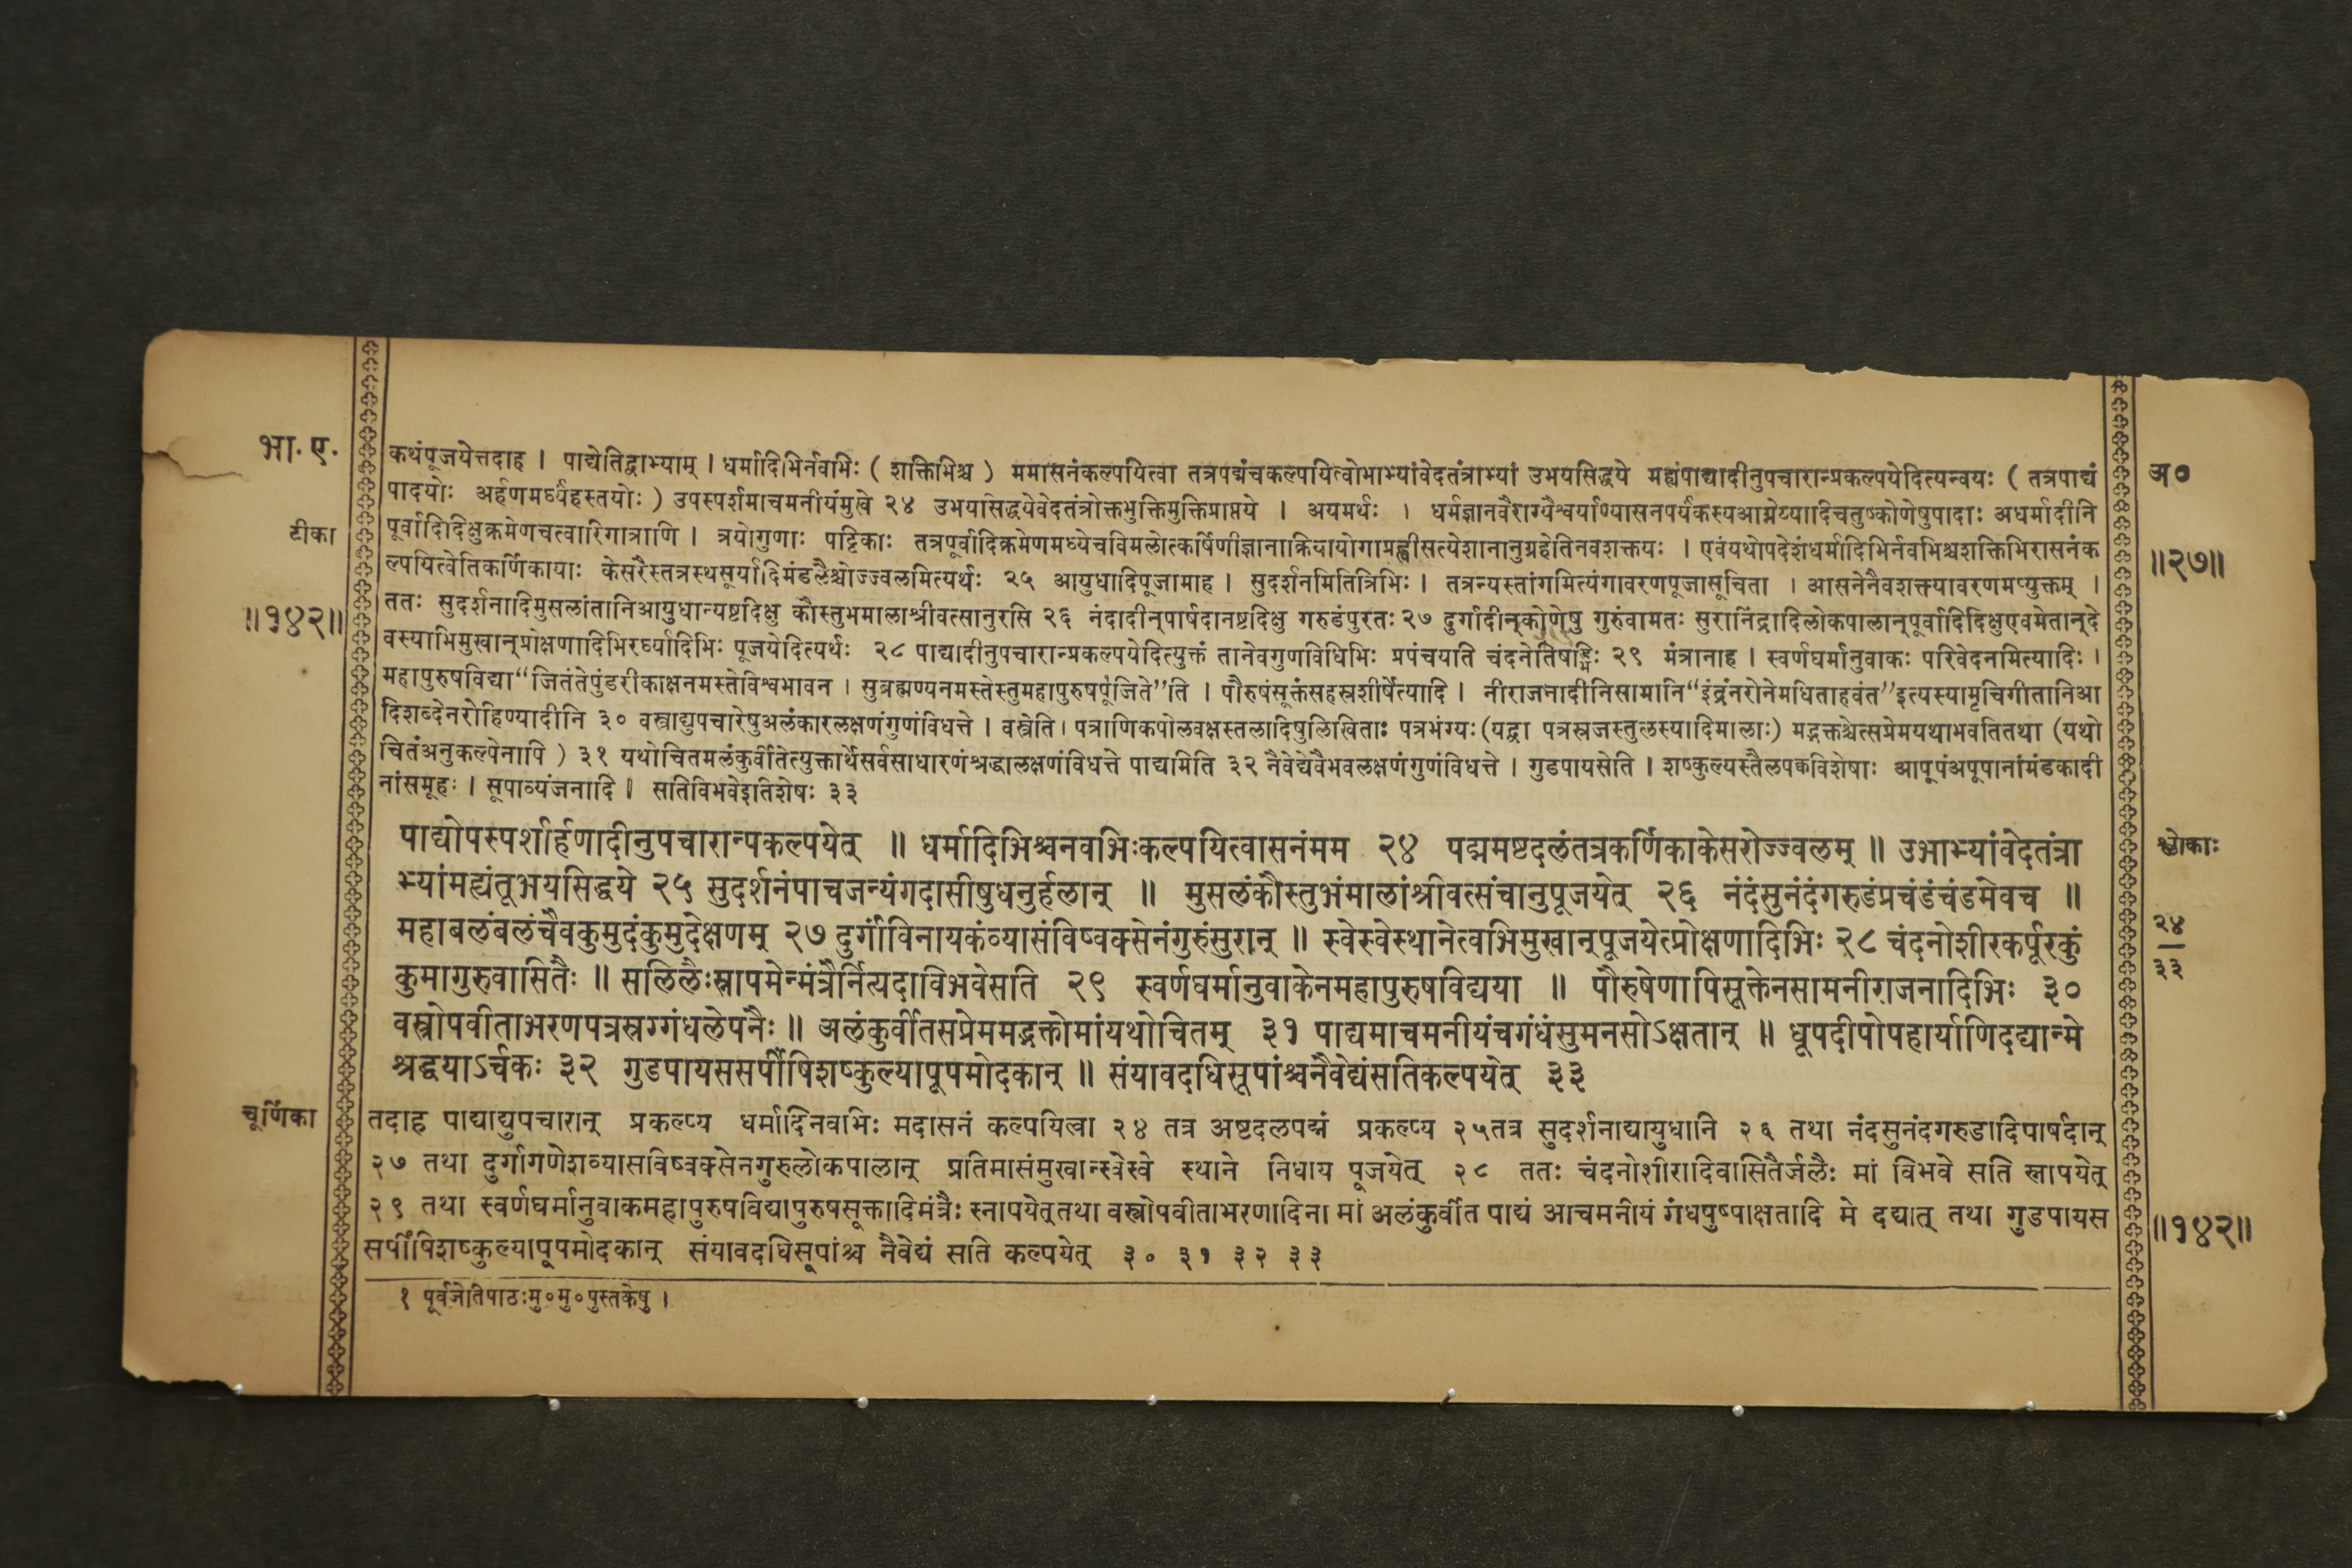 भा. ए.
कथंपूजयेत्तदाह । पाद्येतिद्वाभ्याम् । धर्मादिभिर्नवभिः ( शक्तिभिश्च ) ममासनंकल्पयित्वा तत्रपद्मंचकल्पयित्वोभाभ्यांवेदतंत्राभ्यां उभयसिद्धये मह्यंपाद्यादीनुपचारान्प्रकल्पयेदित्यन्वयः ( तत्रपाद्यं
अ०
पादयोः अर्हणमर्घ्यंहस्तयोः ) उपस्पर्शमाचमनीयंमुखे २४ उभयसिद्धयेवेदतंत्रोक्तभुक्तिमुक्तिप्राप्तये । अयमर्थः । धर्मज्ञानवैराग्यैश्वर्याण्यासनपर्यंकस्यआग्नेय्यादिचतुष्कोणेषुपादाः अधर्मादीनि
टीका
पूर्वादिदिक्षुक्रमेणचत्वारिगात्राणि । त्रयोगुणाः पट्टिकाः तत्रपूर्वादिक्रमेणमध्येचविमलोत्कर्षिणीज्ञानाक्रियायोगाप्रह्वीसत्येशानानुग्रहेतिनवशक्तयः । एवंयथोपदेशंधर्मादिभिर्नवभिश्चशक्तिभिरासनंक
॥२७॥
ल्पयित्वेतिकर्णिकायाः केसरैस्तत्रस्थसूर्यादिमंडलैश्चोज्ज्वलमित्यर्थः २५ आयुधादिपूजामाह । सुदर्शनमितित्रिभिः । तत्रन्यस्तांगमित्यंगावरणपूजासूचिता । आसनेनैवशक्तयावरणमप्युक्तम् ।
॥१४२॥
ततः सुदर्शनादिमुसलांतानिआयुधान्यष्टदिक्षु कौस्तुभमालाश्रीवत्सानुरसि २६ नंदादीन्पार्षदानष्टदिक्षु गरुडंपुरतः २७ दुर्गादीन्कोणेषु गुरुंवामतः सुरानिंद्रादिलोकपालान्पूर्वादिदिक्षुएवमेतान्दे
वस्याभिमुखान्प्रोक्षणादिभिरर्घ्यादिभिः पूजयेदित्यर्थः २८ पाद्यादीनुपचारान्प्रकल्पयेदित्युक्तं तानेवगुणविधिभिः प्रपंचयति चंदनेतिषड्भिः २९ मंत्रानाह । स्वर्णघर्मानुवाकः परिवेदनमित्यादिः ।
महापुरुषविद्या“जितंतेपुंडरीकाक्षनमस्तेविश्वभावन । सुब्रह्मण्यनमस्तेस्तुमहापुरुषपूर्जिते”ति । पौरुषंसूक्तंसहस्रशीर्षेत्यादि । नीराजनादीनिसामानि“इंद्रंनरोनेमधिताहवंत”इत्यस्यामृचिगीतानिआ
दिशब्देनरोहिण्यादीनि ३० वस्त्राद्युपचारेषुअलंकारलक्षणंगुणंविधत्ते । वस्त्रेति । पत्राणिकपोलवक्षस्तलादिषुलिखिताः पत्रभंग्यः (यद्वा पत्रस्रजस्तुलस्यादिमालाः) मद्भक्तश्चेत्सप्रेमयथाभवतितथा (यथो
चितंअनुकल्पेनापि ) ३१ यथोचितमलंकुर्वीतेत्युक्तार्थेसर्वसाधारणंश्रद्धालक्षणंविधत्ते पाद्यमिति ३२ नैवेद्येवैभवलक्षणंगुणंविधत्ते । गुडपायसेति । शष्कुल्यस्तैलपक्वविशेषाः आपूपंअपूपानांमंडकादी
नांसमूहः । सूपाव्यंजनादि । सतिविभवेइतिशेषः ३३
पाद्योपस्पर्शार्हणादीनुपचारान्प्रकल्पयेत् ॥ धर्मादिभिश्चनवभिःकल्पयित्वासनंमम २४ पद्ममष्टदलंतत्रकर्णिकाकेसरोज्ज्वलम् ॥ उभाभ्यांवेदतंत्रा
श्लोकाः
भ्यांमह्यंतूभयसिद्धये २५ सुदर्शनंपाचजन्यंगदासीषुधनुर्हलान् ॥ मुसलंकौस्तुभंमालांश्रीवत्संचानुपूजयेत् २६ नंदंसुनंदंगरुडंप्रचंडंचंडमेवच ॥
महाबलंबलंचैवकुमुदंकुमुदेक्षणम् २७ दुर्गांविनायकंव्यासंविष्वक्सेनंगुरुंसुरान् ॥ स्वेस्वेस्थानेत्वभिमुखान्पूजयेत्प्रोक्षणादिभिः २८ चंदनोशीरकर्पूरकुं
२४
३३
कुमागुरुवासितैः ॥ सलिलैःस्नापमेन्मंत्रैर्नित्यदाविभवेसति २९ स्वर्णघर्मानुवाकेनमहापुरुषविद्यया ॥ पौरुषेणापिसूक्तेनसामनीराजनादिभिः ३०
वस्त्रोपवीताभरणपत्रस्रग्गंधलेपनैः ॥ अलंकुर्वीतसप्रेममद्भक्तोमांयथोचितम् ३१ पाद्यमाचमनीयंचगंधंसुमनसोऽक्षतान् ॥ धूपदीपोपहार्याणिदद्यान्मे
श्रद्धयाऽर्चकः ३२ गुडपायससर्पींषिशष्कुल्यापूपमोदकान् ॥ संयावदधिसूपांश्चनैवेद्यंसतिकल्पयेत् ३३
चूर्णिका
तदाह पाद्याद्युपचारान् प्रकल्प्य धर्मादिनवभिः मदासनं कल्पयित्वा २४ तत्र अष्टदलपद्मं प्रकल्प्य २५तत्र सुदर्शनाद्यायुधानि २६ तथा नंदसुनंदगरुडादिपार्षदान्
२७ तथा दुर्गागणेशव्यासविष्वक्सेनगुरुलोकपालान् प्रतिमासंमुखान्स्वेस्वे स्थाने निधाय पूजयेत् २८ ततः चंदनोशीरादिवासितैर्जलैः मां विभवे सति स्नापयेत्
२९ तथा स्वर्णघर्मानुवाकमहापुरुषविद्यापुरुषसूक्तादिमंत्रैः स्नापयेत्तथा वस्त्रोपवीताभरणादिना मां अलंकुर्वीत पाद्यं आचमनीयं गंधपुष्पाक्षतादि मे दद्यात् तथा गुडपायस
॥१४२॥
सर्पींषिशष्कुल्यापूपमोदकान् संयावदधिसूपांश्च नैवेद्यं सति कल्पयेत् ३० ३१ ३२ ३३
१ पूर्वजेतिपाठःमु०मु०पुस्तकेषु ।